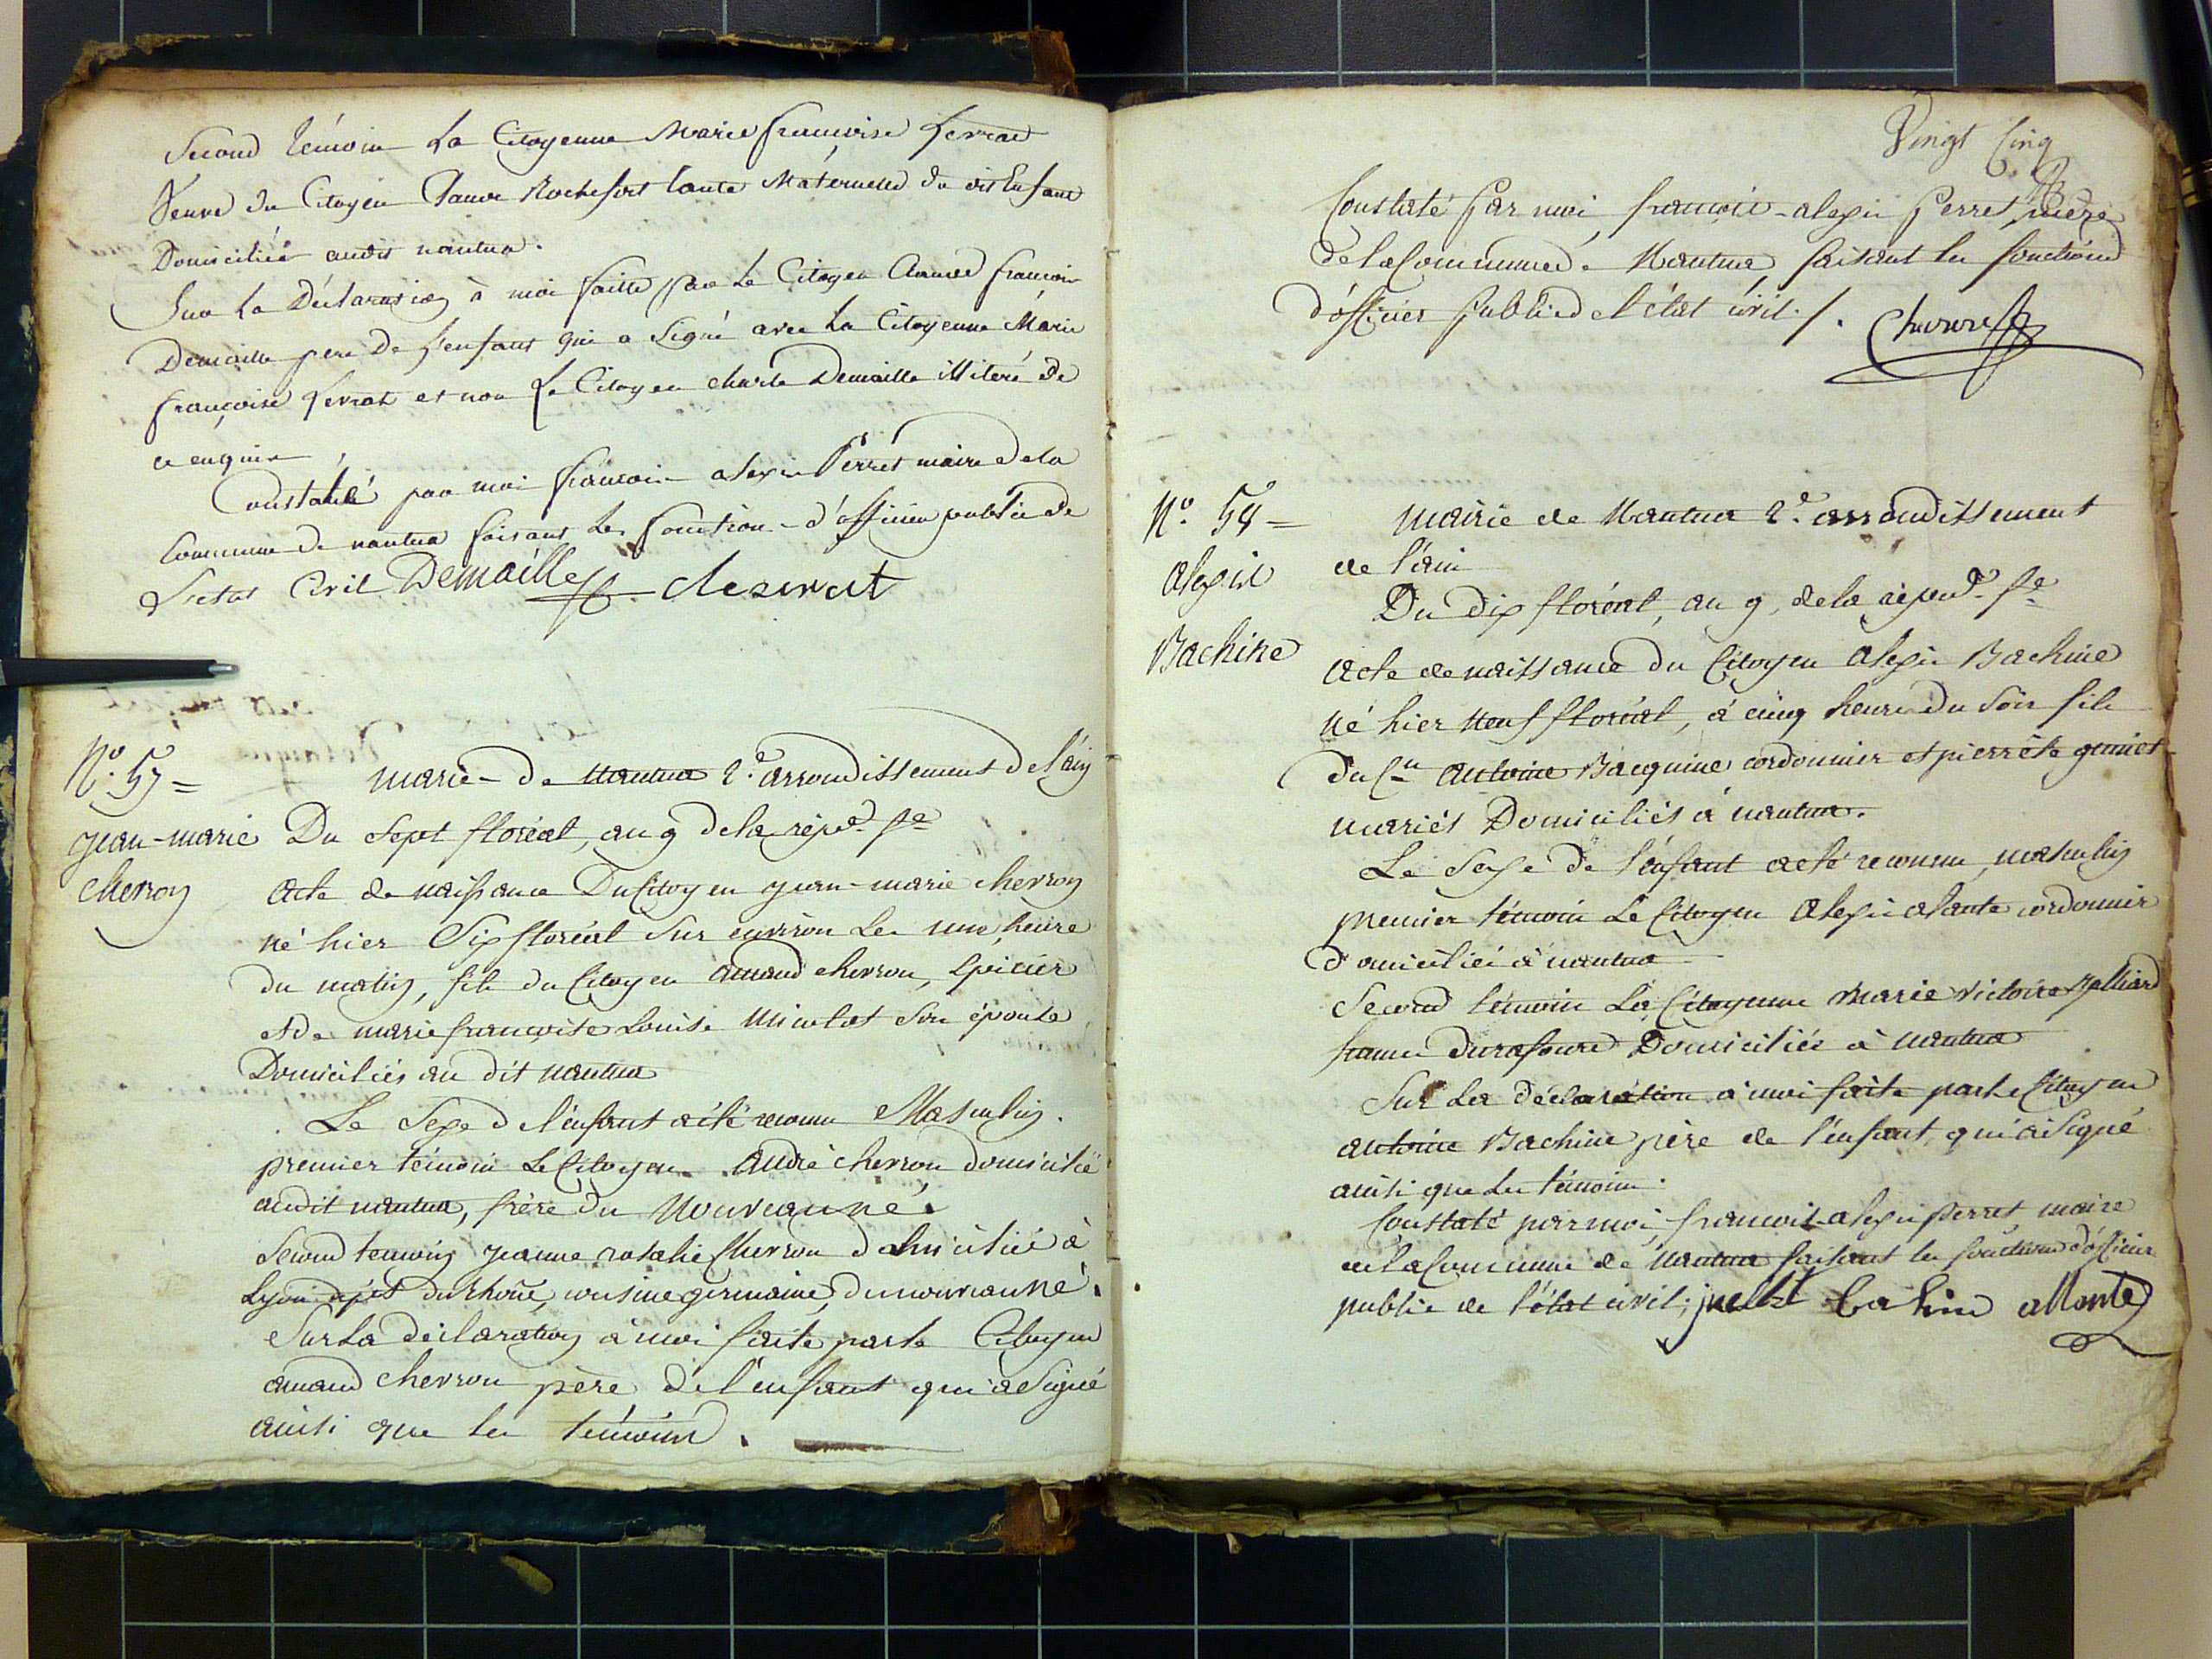 Second témoin La Citoyenne Marie françoise Levrat
Veuve du Citoyen Rochefort tante Maternelle du dit Enfant
Domiciliée audit nantua.
Sur La Déclaration à moi faitte par Le Citoyen françois
Demaille pere De L'enfant qui a Signé avec La Citoyenne Marie
françoise Levrat et non Le Citoyen charle Demaille illiteré de
ce enquis
Constatté par moi françois alexis Perret maire de la
Commune de nantua faisant les fonction d'officier public de
L'etat Civil Demaille
N.º 57 =
jean-marie
chevron
marie de Nantua 2.e arrondissement de l'ain
Du Sept floréal, an 9 de la répu.e f.se
acte de naissance Du Citoyen jean-marie chevron
né hier Six floréal Sur environ Les une heure
du matin, fils du Citoyen amand chevron, Epicier
et de marie françoise Louise Micolet Son épouse
Domiciliés au dit nantua
Le Sexe de l'enfant a été reconnu Masculin.
premier témoin Le Citoyen André chevron domicilié
audit nantua, frère du Nouveau né.
Second temoin jeanne rosalie Chevron domiciliée à
Lyon dépt du Rhône, cousine germaine, du nouveau né.
Sur la déclaration à moi faite par le Citoyen
amand chevron père de l'enfant qui a Signé
ainsi que les témoins.
Vingt Cinq
Constaté par moi françois-alexis Perret, maire
de la Commune de Nantua faisant les fonctions
d'officier public de l'état civil ./.
N.º 58 =
alexis
Bachine
Mairie de Nantua 2.e arrondissement
de l'ain
Du dix floréal, an 9, de la répu.e f.se
acte de naissance du Citoyen alexis Bachine
né hier neuf floréal, à cinq heure du Soir fils
du C.en antoine Bacquine cordonnier et pierrete guniet
mariés Domiciliés à nantua.
Le Sexe de l'enfant a été reconnu, masculin
premier témoin Le Citoyen alexis alante cordonnier
domicilié à nantua
Second témoin La Citoyenne Marie Victoire Jalliard
femme durafoure Domiciliée à nantua
Sur La déclaration à moi faite par le Citoyen
antoine Bachine père de l'enfant, qui a Signé
ainsi que les témoins.
Constaté par moi, françois-alexis perret maire
de la Commune de Nantua faisant les fonctions d'officier
public de l'état civil; bachine allante